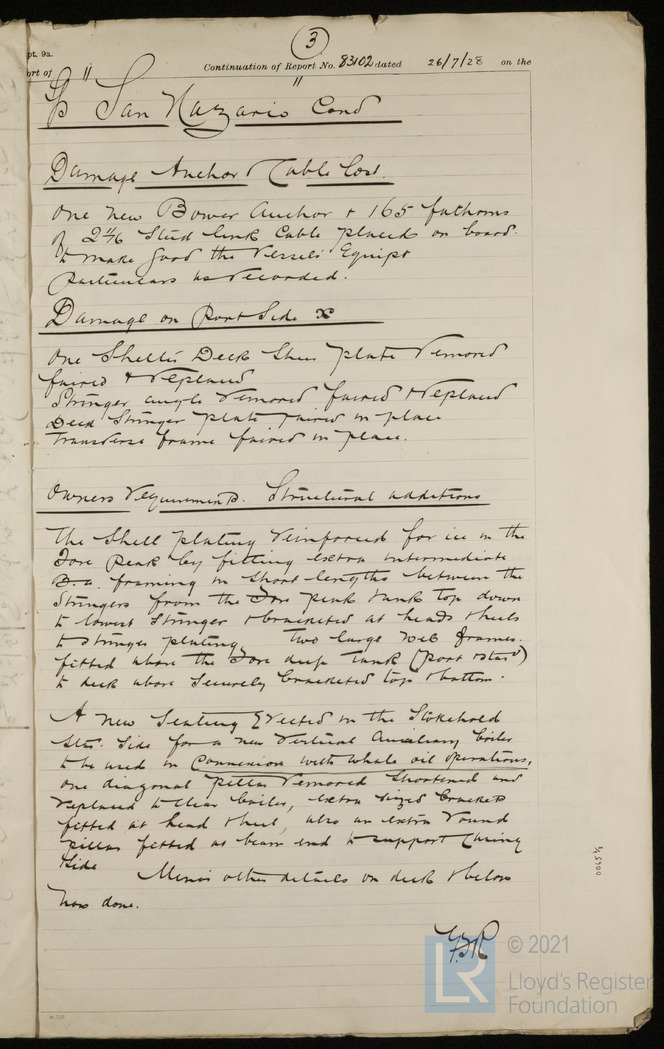 3
pt. 9a.
ort of " Continuation of Report No. 83102 dated 26/7/28 on the
"
San Nazario Cond
Damage Anchor & Cable Lost.
One new Bower Anchor & 165 fathoms
of 2 4/16 Stud link Cable placed on board
to make good the Vessels Equipt
Particulars as recorded.
Damage on Port Side
One Shelter Deck Sheer plate removed
faired & replaced
Stringer angle removed faired & replaced
Deck Stringer plate faired in place
Transverse frame faired in place.
Owners requirements. Structural additions
The Shell plating reinforced for ice in the
Fore Peak by fitting extra intermediate
framing in short lengths between the
Stringers from the Fore peak tank top down
to lowest Stringer & bracketed at heads & heels
to Stringer plating. Two large web frames
fitted above the Fore deep Tank (port & star)
to deck above securely bracketed top & bottom.
A new Seating Erected in the Stokehold
Side for a new Vertical Auxiliary boiler
to be used in Connexion with whale oil operations,
one diagonal pillar removed shortened and
replaced to clear boiler, extra sized brackets
fitted at head & heel, also an extra round
pillar fitted at beam end to support Casing
Side
Minor other details on deck & below
now done.
© 2021
LR
Lloyd's Register
Foundation